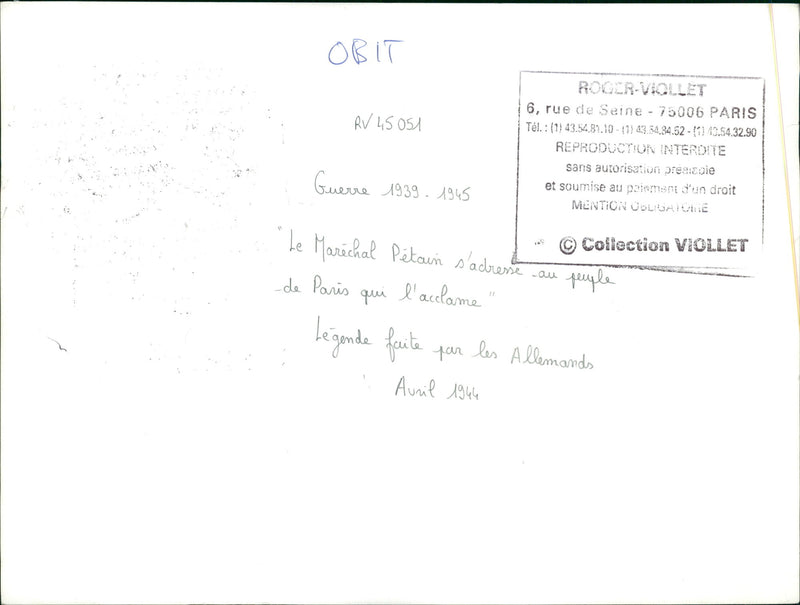 OBIT
RV 45 051
Guerre 1939 - 1945
"Le Maréchal Pétain s'adresse au peuple
de Paris qui l'acclame"
Légende faite par les Allemands
Avril 1944
ROGER-VIOLLET
6, rue de Seine - 75006 PARIS
Tél. : (1) 43.54.81.10 - (1) 43.54.84.52 - (1) 43.54.32.90
REPRODUCTION INTERDITE
sans autorisation préalable
et soumise au paiement d'un droit
MENTION OBLIGATOIRE
© Collection VIOLLET